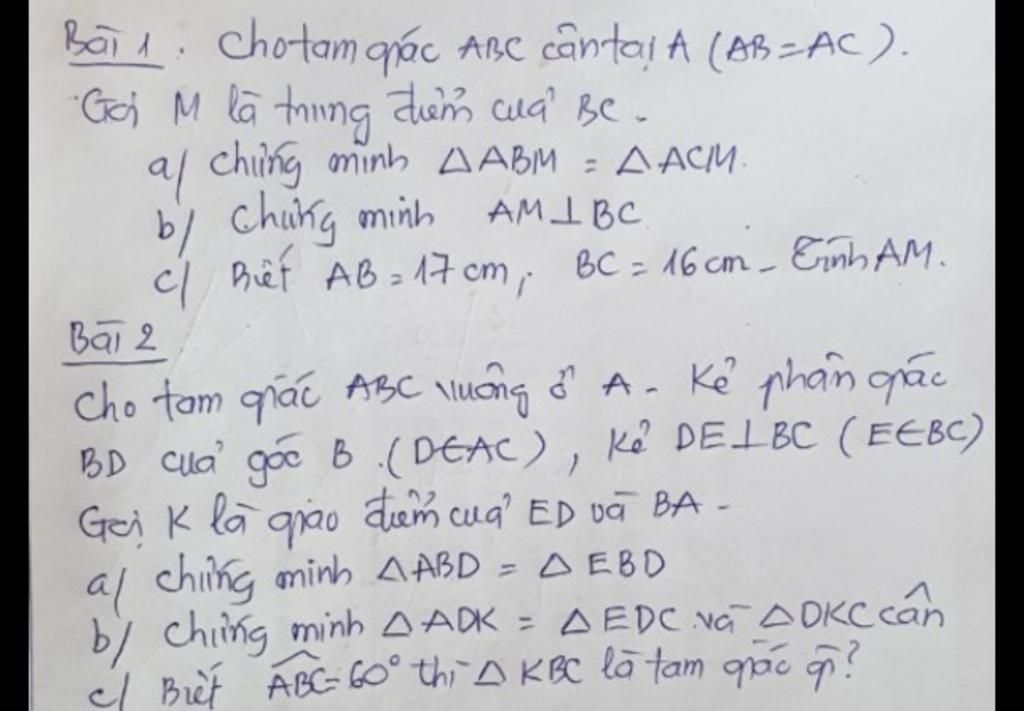 Bài 1. Cho tam giác ABC cân tại A (AB = AC).
Gọi M là trung điểm của BC.
a/ Chứng minh △ABM = △ACM.
b/ Chứng minh AM⊥BC
c/ Biết AB = 17cm; BC = 16cm - Tính AM.
Bài 2
Cho tam giác ABC vuông ở A - Kẻ phân giác
BD của góc B. (D∈AC), kẻ DE⊥BC (E∈BC)
Gọi K là giao điểm của ED và BA -
a/ Chứng minh △ABD = △EBD
b/ Chứng minh △ADK = △EDC và △DKC cân
c/ Biết \widehat{ABC}=60° thì △KBC là tam giác gì?